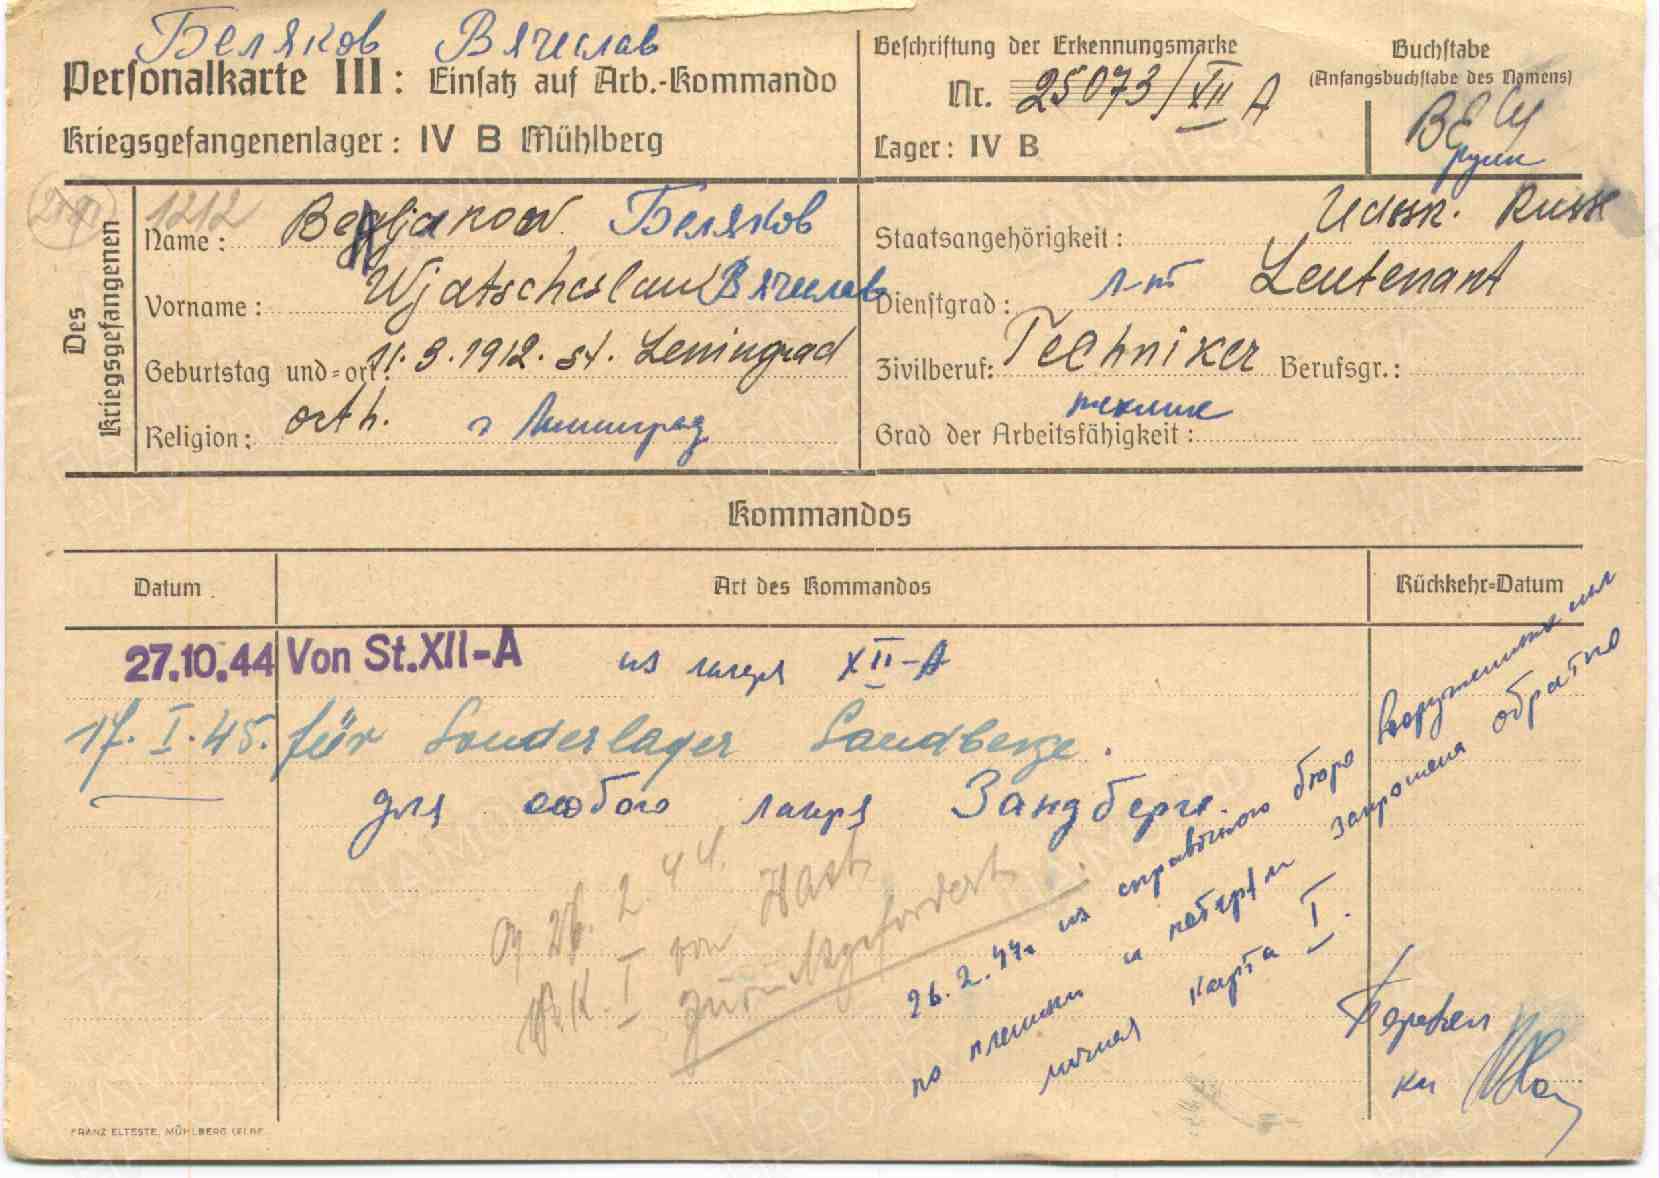 Беляков Вячеслав
Personalkarte III: Einsatz auf Arb.-Kommando
Kriegsgefangenenlager: IV B Mühlberg
Beschriftung der Erkennungsmarke
Nr. 25073/XII A
Lager: IV B
Buchstabe
(Anfangsbuchstabe des Namens)
Des Kriegsgefangenen
1212
Name: Беляков
Vorname: Wjatscheslaw Вячеслав
Geburtstag und =ort: 11.9.1912. st. Leningrad
Religion: orth. г Ленинград
Staatsangehörigkeit: Udssr. Russe
Dienstgrad: л-нт Leutenant
Zivilberuf: Techniker Berufsgr.:
техник
Grad der Arbeitsfähigkeit:
Kommandos
Datum
Art des Kommandos
Rückkehr-Datum
27.10.44 Von St.XII-A из лагеря XII-А
17.I.45. für Sonderlager Sandberge.
для особого лагеря Зандберге.
26.2.44.
P.K. I von Wast
zurückgefordert.
26.2.44г из справочного бюро Вооруженных сил
по пленным и потерям запрошена обратно
личная карта I.
Перевел
FRANZ ELTESTE, MÜHLBERG (ELBE